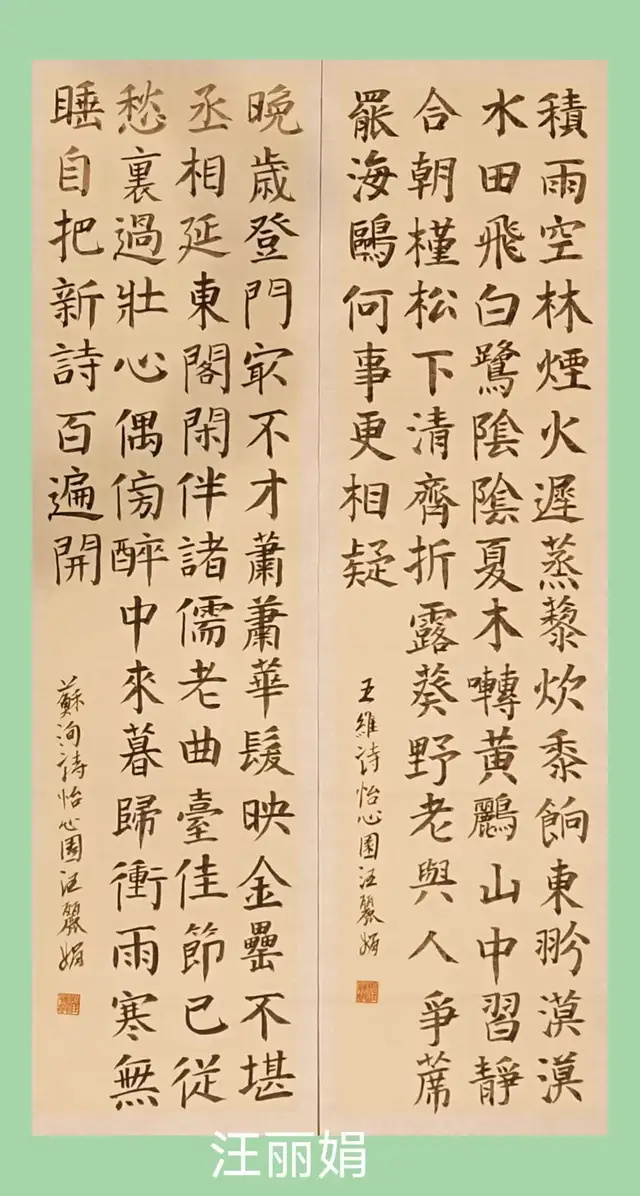 積雨空林煙火遲蒸藜炊黍餉東漠漠
水田飛白鷺陰陰夏木囀黃鸝山中習靜
合朝槿松下清齊折露葵野老與人爭蓆
罷海鷗何事更相疑
王維詩怡心園汪麗娟
晚歲登門㝡不才蕭蕭華髮映金罍不堪
丞相延東閣閑伴諸儒老曲臺佳節已從
愁裏過壯心偶傍醉中來暮歸衝雨寒無
睡自把新詩百遍開
蘇洵詩怡心園汪麗娟
汪丽娟